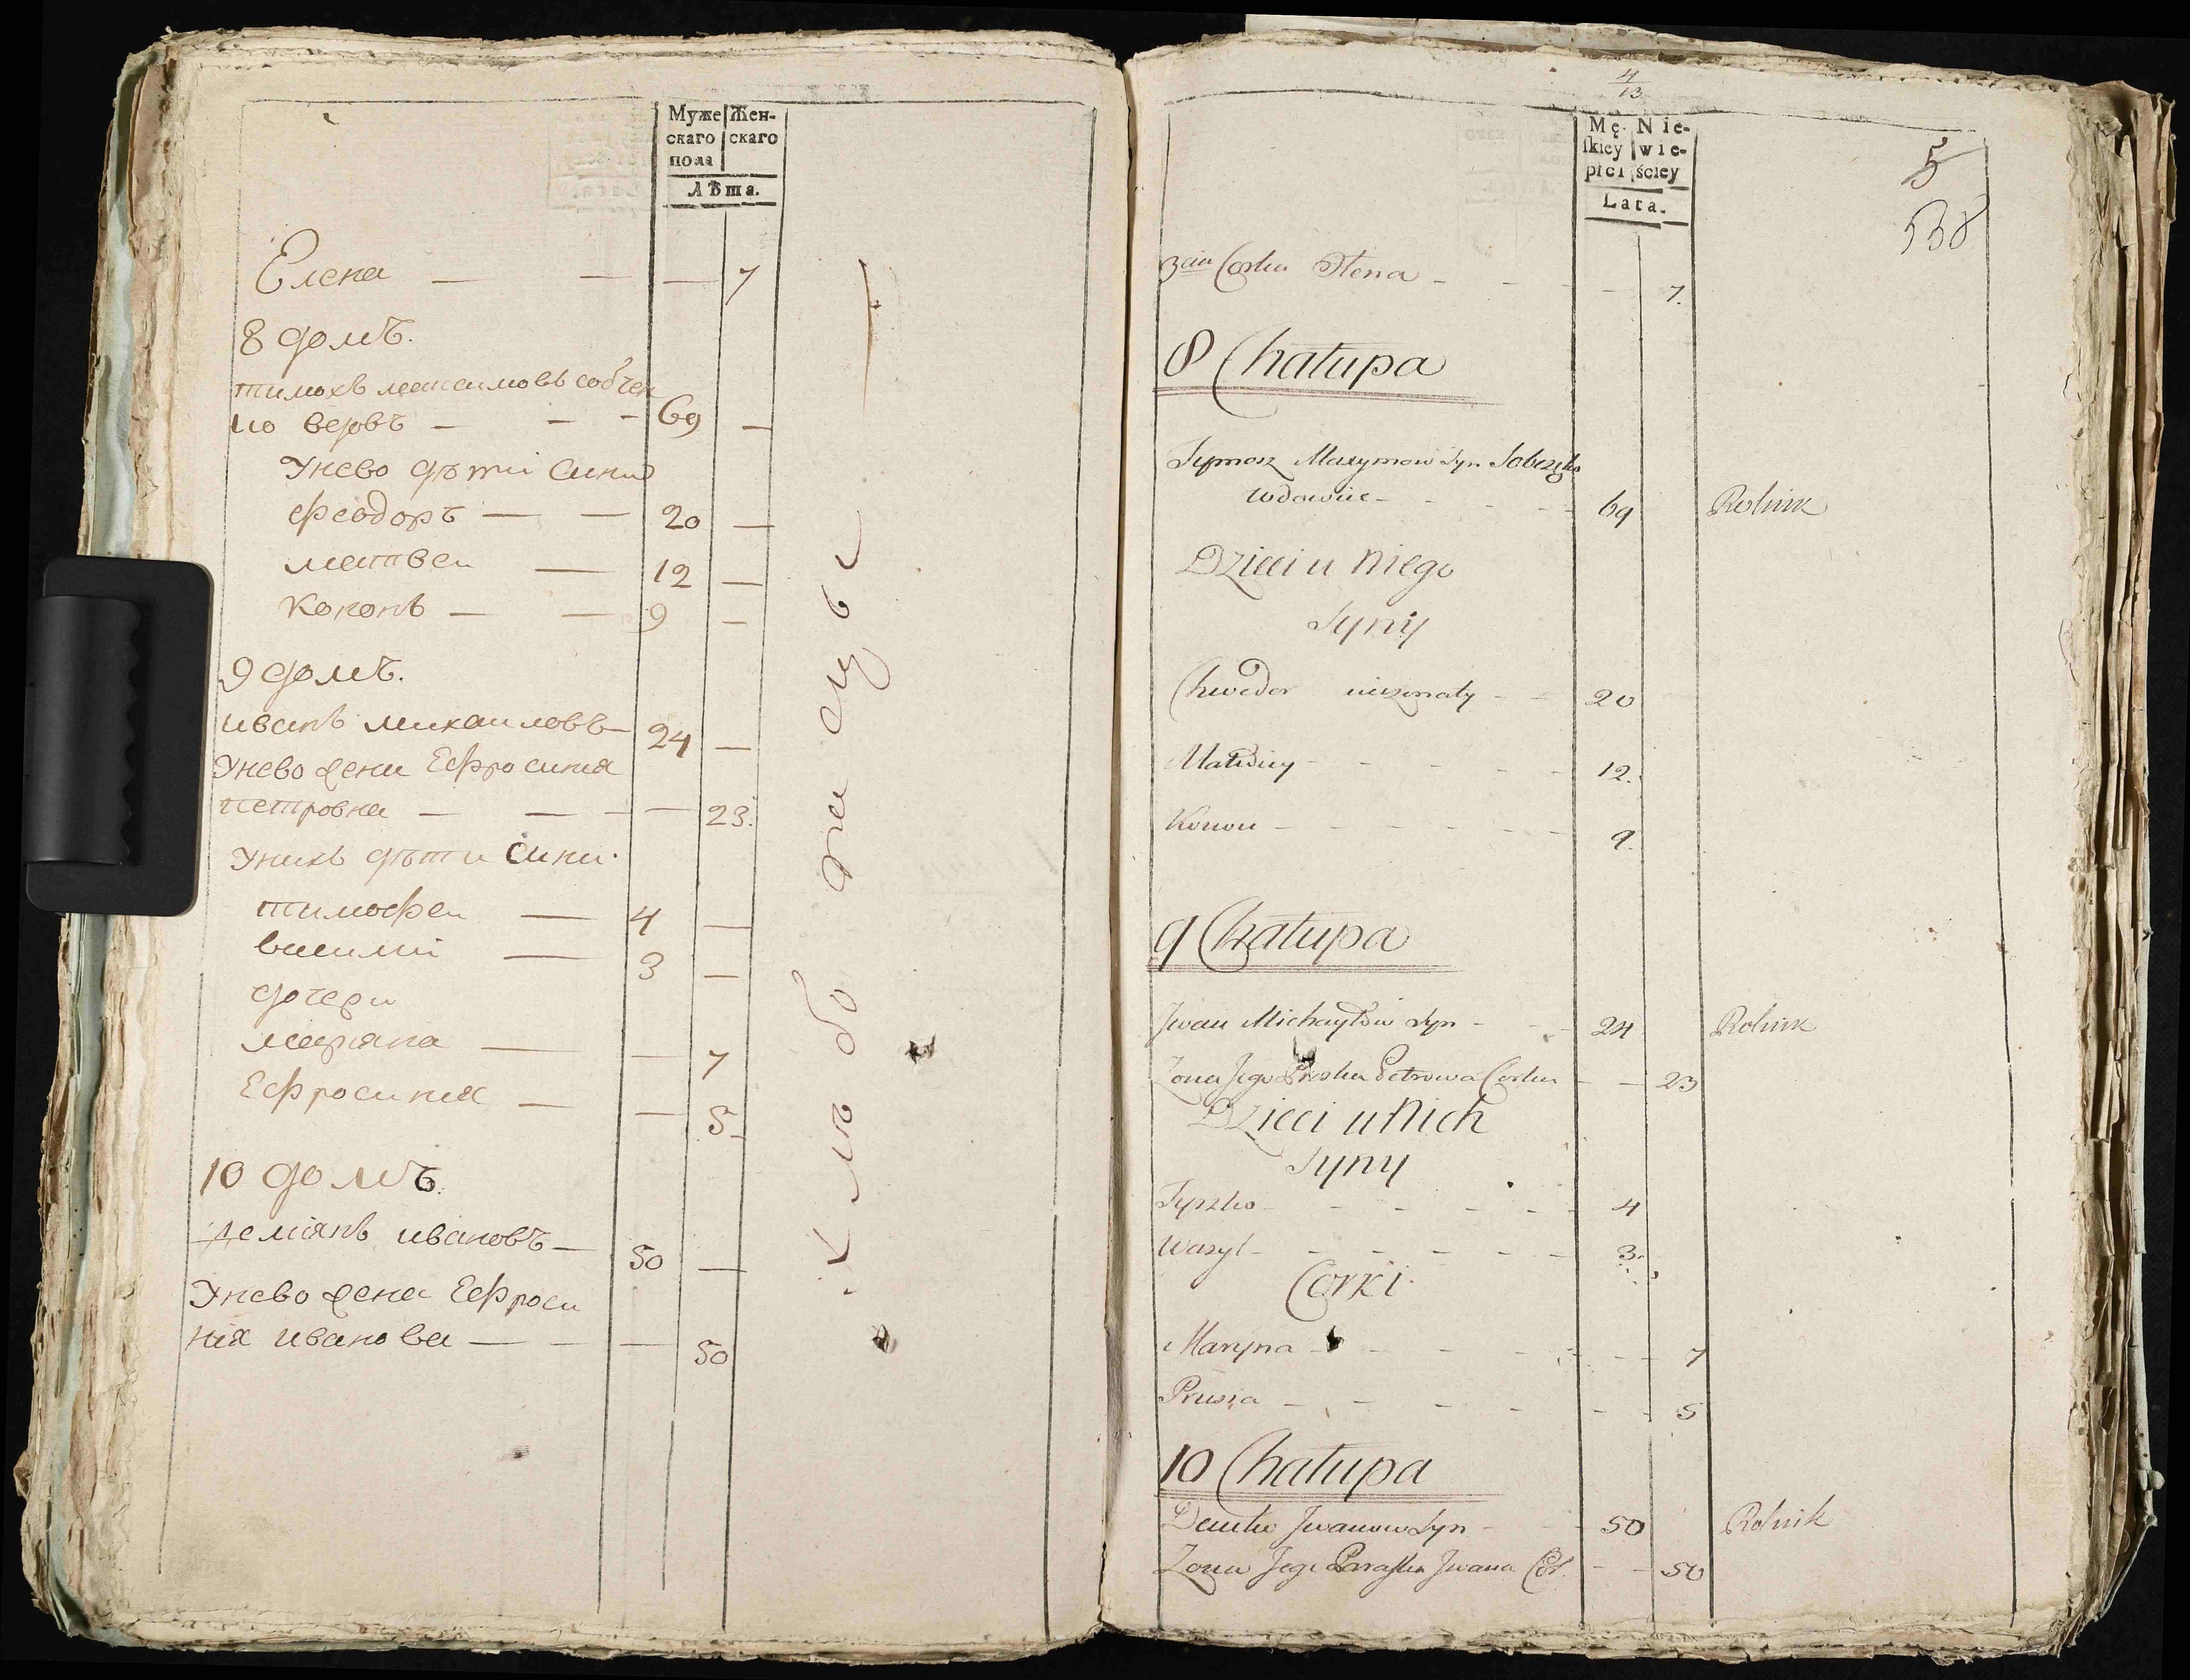 Муже Жен-
скаго скаго
пола
Лѣта.
Елена — — — 7
8 домъ.
тимохъ максимовъ собчен
ко вдовъ — — — 69 —
Унево дѣти сини
феодоръ — — 20 —
матвеи — 12 —
Кононъ — — 9 —
9 домъ.
иванъ михаиловъ — 24 —
Унево жена Ефросиния
петровна — — — — 23.
Унихъ дѣти сини.
тимофеи — 4 —
василиi — 3 —
дочери
маряна — — 7
Ефросиния — — 5
10 домъ.
демiянъ ивановъ — 50 —
Унево жена Ефроси
нiя иванова — — — 50
4
13
Mę- Nie-
ſkiey wie-
płci ściey
Lata.
5
538
3cia Corka Olena - - - - 7.
8 Chałupa
Tymosz Maxymow Syn Sobczęko
Wdowiec - - - - 69 Rolnik
Dzieci u Niego
Syny
Chwedor nieżonaty - - 20
Matwiey - - - - - 12.
Konon - - - - - - 9.
9 Chałupa
Jwan Michayłow Syn - - - 24 Rolnik
Zona Jego Proska Petrowa Corka - - 23
Dzieci u Nich
Syny
Tyszko - - - - - - 4
Wasyl - - - - - - 3.
Corki
Maryna - - - - - - - 7
Prusia - - - - - - - 5
10 Chałupa
Demko Jwanow Syn - - 50 Rolnik
Zona Jego Paraska Jwana Cor. - - 50